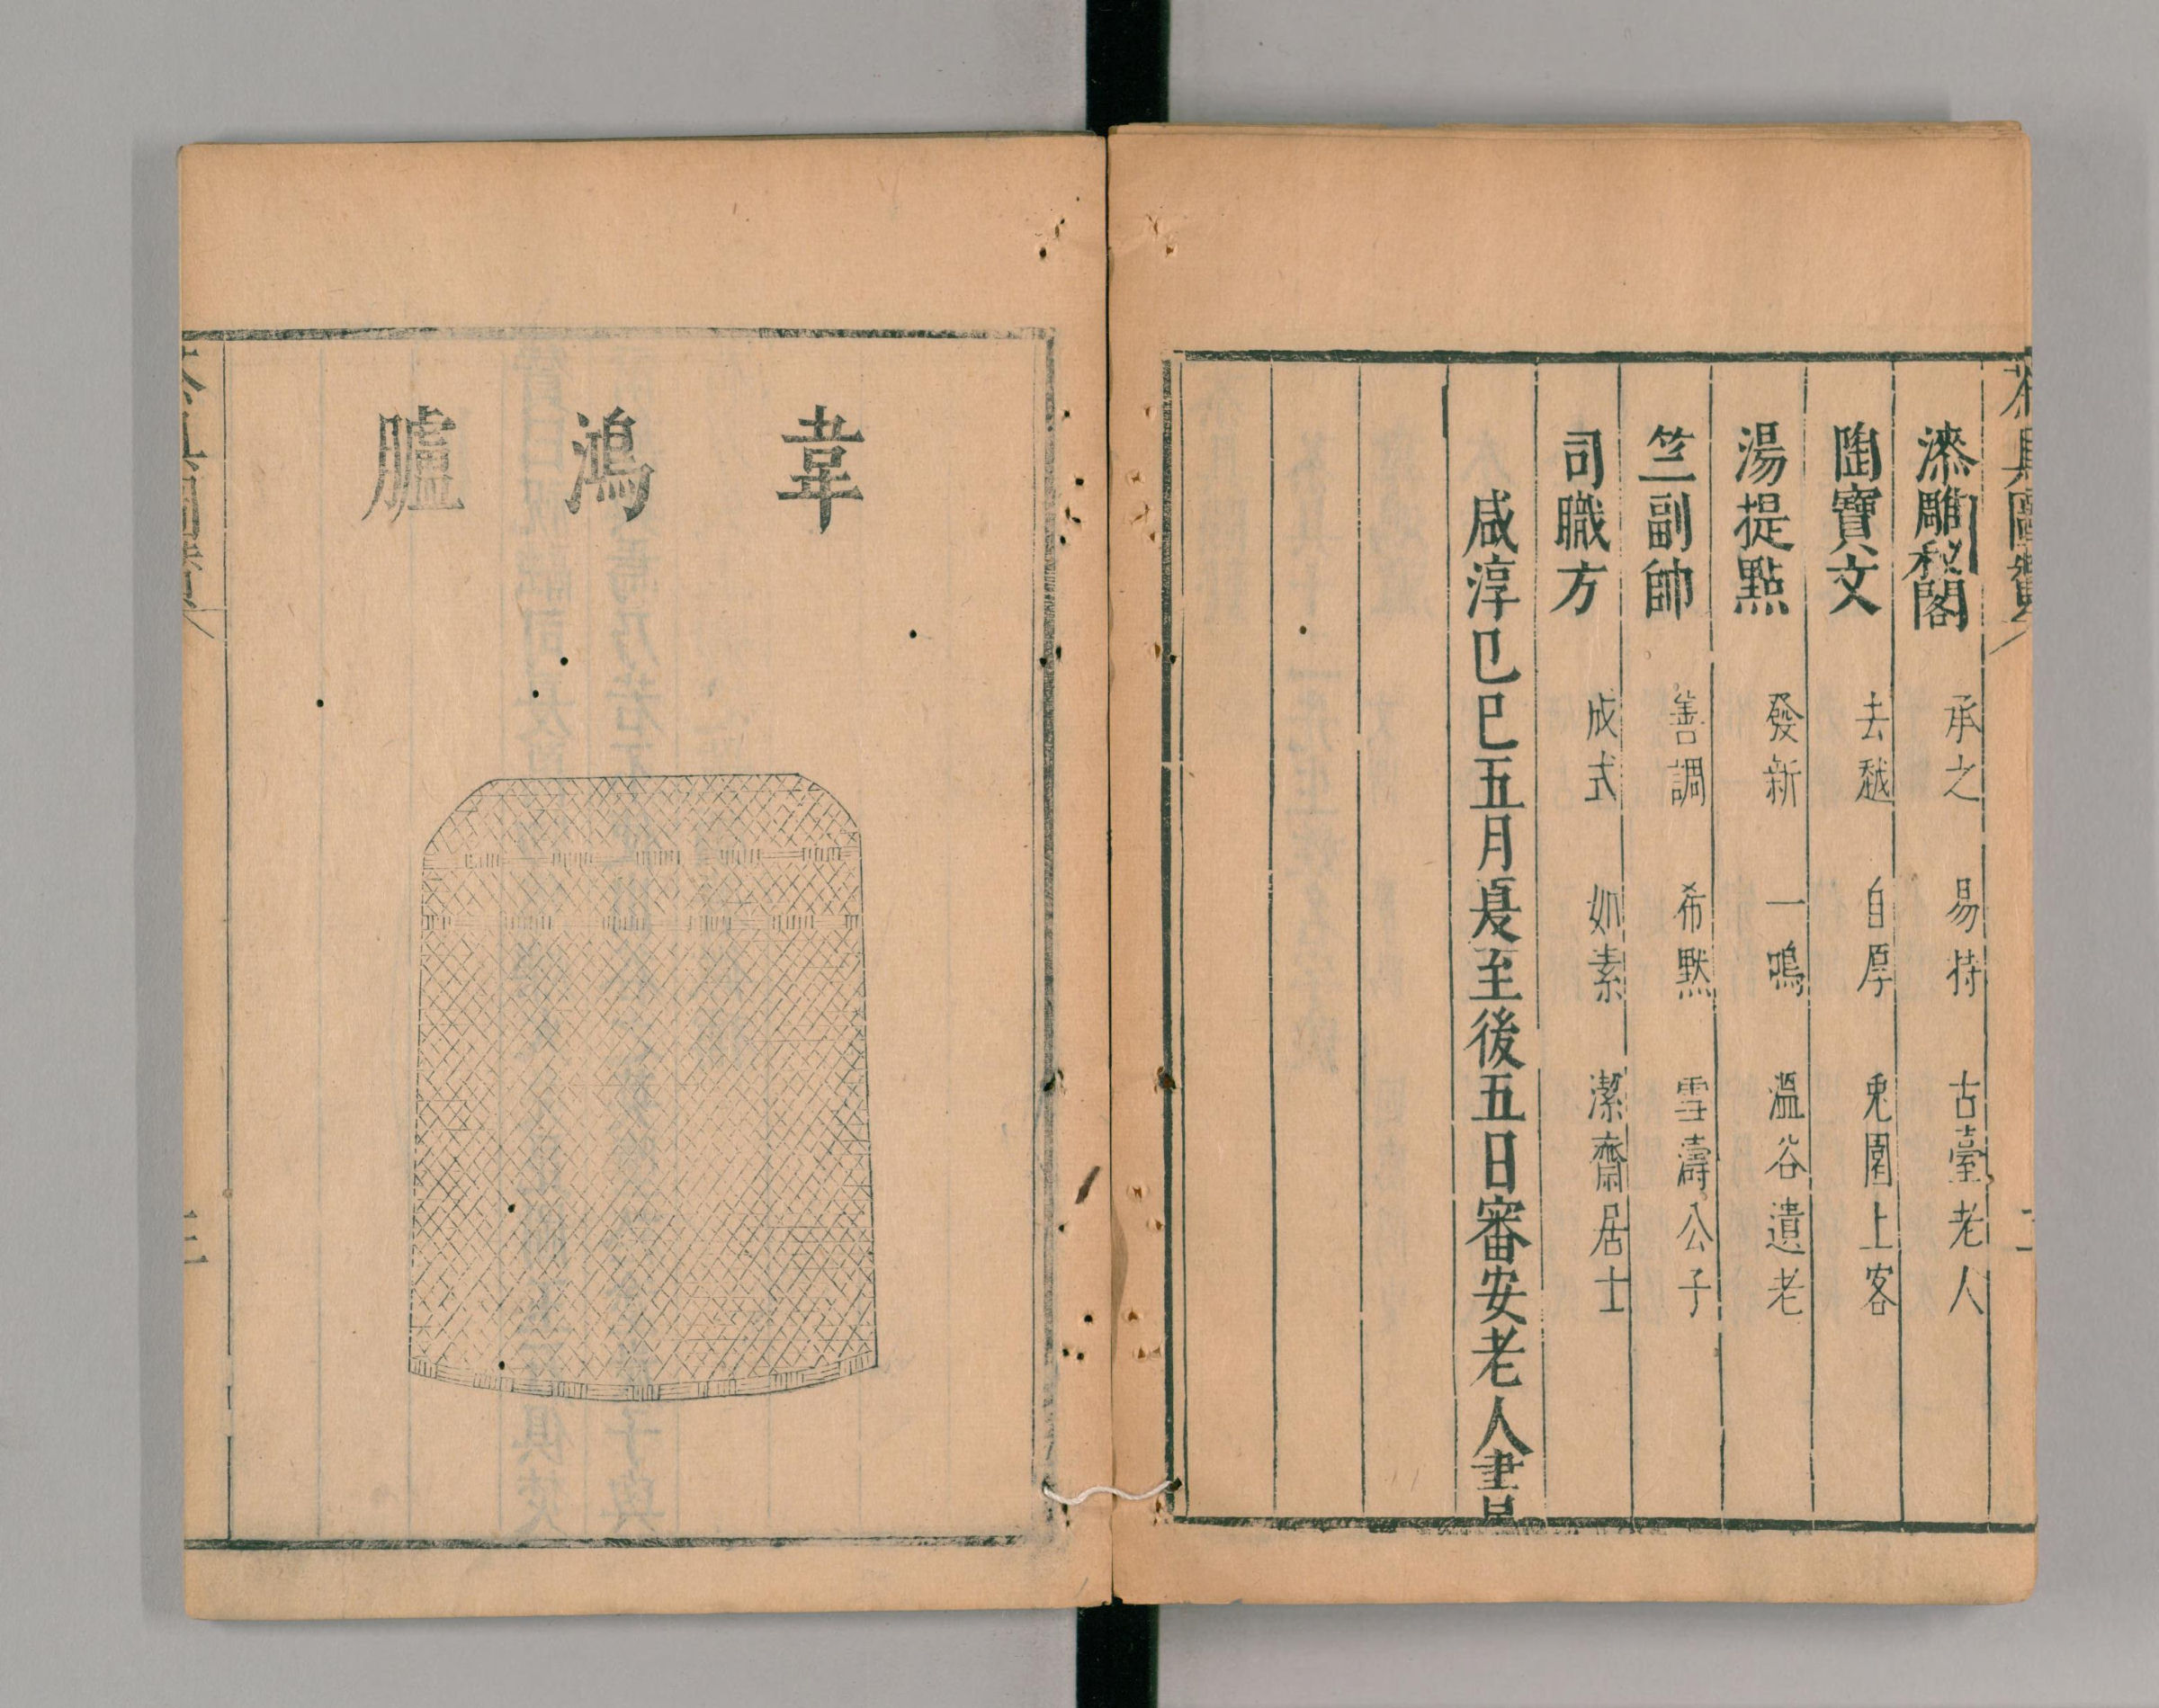 茶具圖贊
二
漆雕秘閣 承之 易持 古臺老人
陶寶文 去越 自厚 兎園上客
湯提點 發新 一鳴 溫谷遺老
竺副帥 善調 希默 雪濤公子
司職方 成式 如素 潔齋居士
咸淳巳巳五月夏至後五日審安老人書
韋鴻臚
三